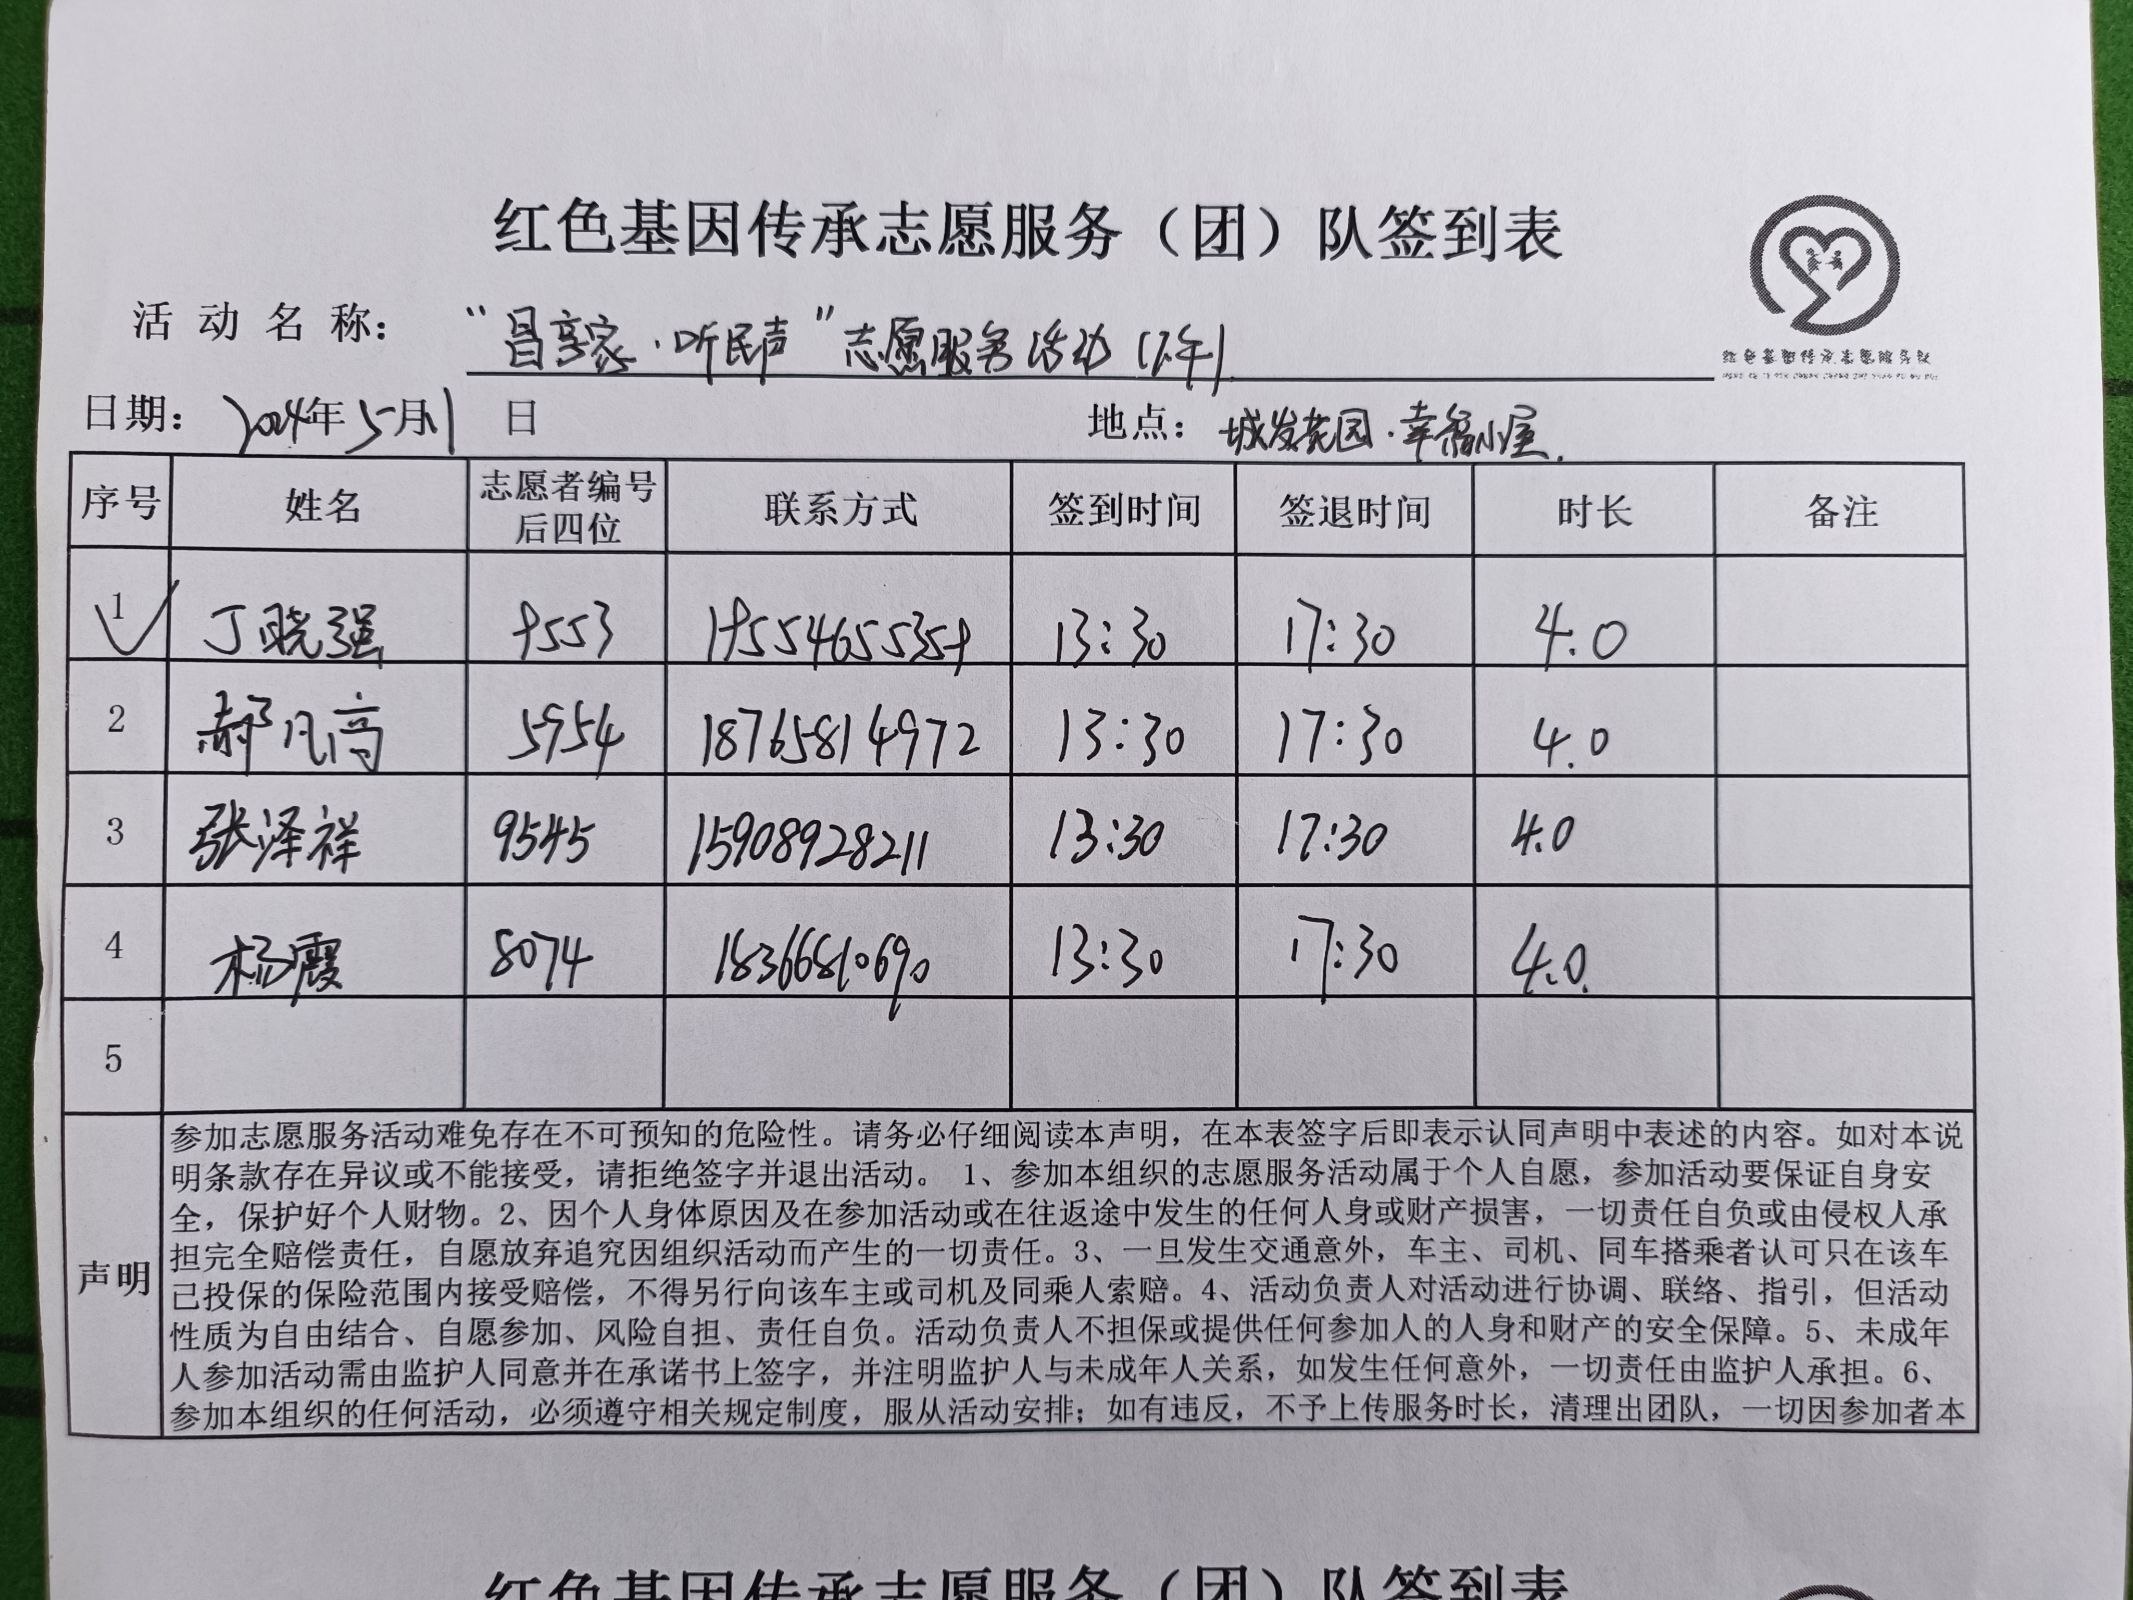 红色基因传承志愿服务（团）队签到表
活动名称： “昌享家·听民声”志愿服务活动（下午）
日期： 2024年5月1日 地点： 城发花园·幸福小屋.
序号 姓名 志愿者编号后四位 联系方式 签到时间 签退时间 时长 备注
1 丁晓强 9553 13:30 17:30 4.0
2 郝凡高 5954 18765814972 13:30 17:30 4.0
3 张泽祥 9545 15908928211 13:30 17:30 4.0
4 杨霞 8074 18366810690 13:30 17:30 4.0
5
声明
参加志愿服务活动难免存在不可预知的危险性。请务必仔细阅读本声明，在本表签字后即表示认同声明中表述的内容。如对本说
明条款存在异议或不能接受，请拒绝签字并退出活动。 1、参加本组织的志愿服务活动属于个人自愿，参加活动要保证自身安
全，保护好个人财物。2、因个人身体原因及在参加活动或在往返途中发生的任何人身或财产损害，一切责任自负或由侵权人承
担完全赔偿责任，自愿放弃追究因组织活动而产生的一切责任。3、一旦发生交通意外，车主、司机、同车搭乘者认可只在该车
已投保的保险范围内接受赔偿，不得另行向该车主或司机及同乘人索赔。4、活动负责人对活动进行协调、联络、指引，但活动
性质为自由结合、自愿参加、风险自担、责任自负。活动负责人不担保或提供任何参加人的人身和财产的安全保障。5、未成年
人参加活动需由监护人同意并在承诺书上签字，并注明监护人与未成年人关系，如发生任何意外，一切责任由监护人承担。6、
参加本组织的任何活动，必须遵守相关规定制度，服从活动安排；如有违反，不予上传服务时长，清理出团队，一切因参加者本
红色基因传承志愿服务（团）队签到表